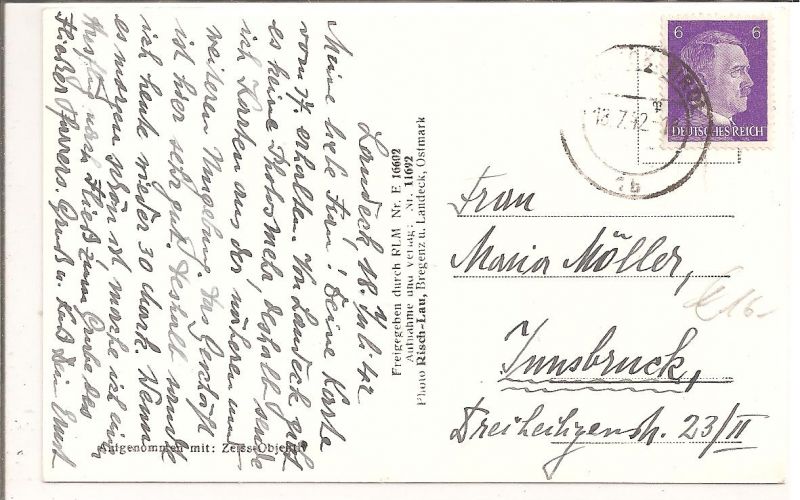 Landeck 18. Juli 42
Meine liebe Firn! Deine Karte
vom 17. erhalten. Von Landeck gibt
es keine Photos mehr, deshalb sende
ich Karten aus der näheren und
weiteren Umgebung. Das Geschäft
ist hier sehr gut. Deshalb sandte
ich heute wieder 30 chart. Wenn
es morgen schön ist mache ich ein
nach Fließ zum Grabe des
Fließer Pfarrers. Gruß u. Kuß Dein Ernst
Aufgenommen mit: Zeiss-Objektiv
Freigegeben durch RLM Nr. E 16602
Aufnahme und Verlag: Nr. 11692
Photo Risch-Lau, Bregenz u. Landeck, Ostmark
6 6
DEUTSCHES REICH
18.7.42
1b
Frau
Maria Möller,
Innsbruck,
Dreiheiligenstr. 23/II
16-